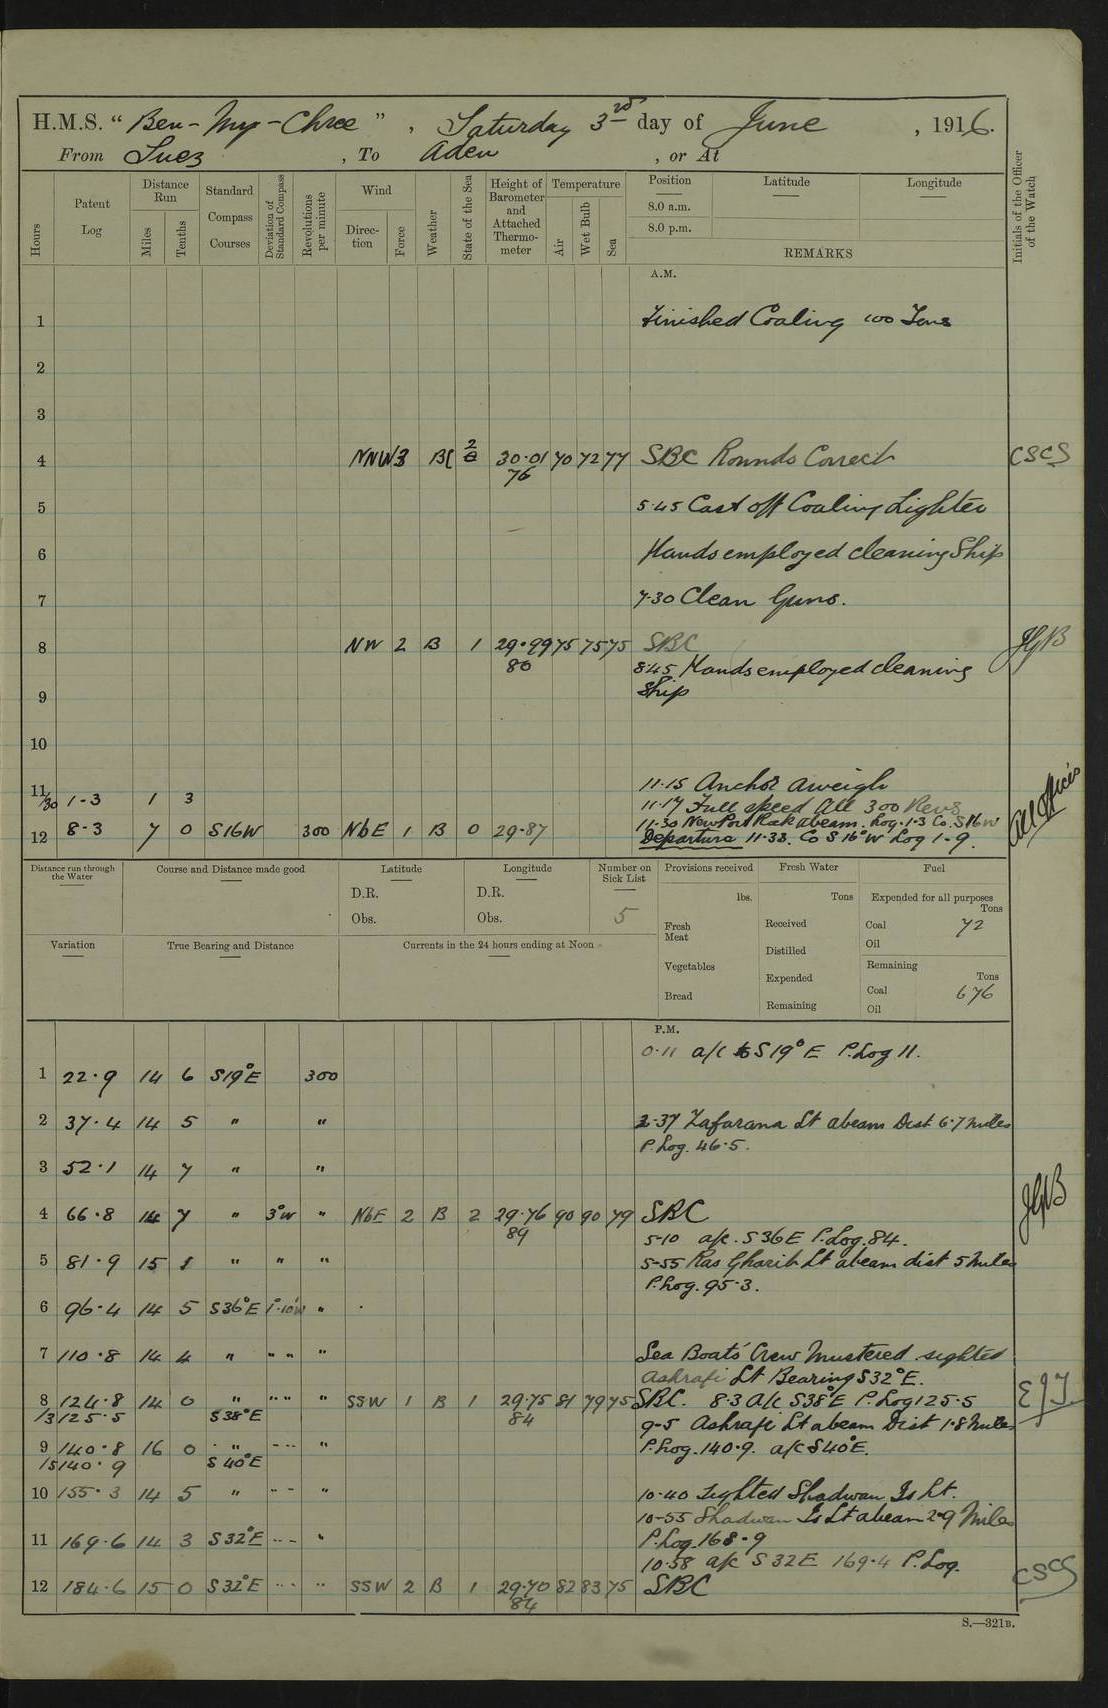 H.M.S. "Ben-My-Chree", Saturday 3rd day of June, 1916.
From Suez, To Aden, or At
Hours Patent Log Distance Run Miles Tenths Standard Compass Courses Deviation of Standard Compass Revolutions per minute Wind Direction Force Weather State of the Sea Height of Barometer and Attached Thermometer Temperature Air Wet Bulb Sea Position Latitude Longitude Initials of the Officer of the Watch
8.0 a.m.
8.0 p.m.
REMARKS
A.M.
1 Finished Coaling 100 Tons
2
3
4 NNW 3 BC 2 30.01 70 72 77 SBC Rounds Correct CSCS
76
5 5.45 Cast off Coaling Lighter
6 Hands employed cleaning Ship
7 7.30 Clean Guns.
8 NW 2 B 1 29.99 75 75 75 SBC JGB
80 8.45 Hands employed cleaning
9 Ship
10
11.15 Anchor aweigh
11/30 1.3 1 3 11.17 Full speed All 300 Revs
11.30 New Port Rock abeam. Log. 1.3 Co. S16W
12 8.3 7 0 S16W 300 NbE 1 B 0 29.87 Departure 11.33. Co S16°W Log 1.9.
Distance run through the Water Course and Distance made good Latitude Longitude Number on Sick List Provisions received Fresh Water Fuel
D.R. D.R. lbs. Tons Expended for all purposes Tons
Obs. Obs. 5 Fresh Meat Received Coal 72
Oil
Variation True Bearing and Distance Currents in the 24 hours ending at Noon Distilled
Vegetables Expended Remaining Tons
Bread Remaining Coal 676
Oil
P.M.
0.11 a/c to S19°E P.Log 11.
1 22.9 14 6 S19°E 300
2 37.4 14 5 " " 2.37 Zafarana Lt abeam Dist 6.7 miles
P.Log. 46.5.
3 52.1 14 7 " "
4 66.8 14 7 " 3°W " NbE 2 B 2 29.76 90 90 79 SBC JGB
89 5-10 a/c. S36E P.Log. 84.
5 81.9 15 1 " " " 5-55 Ras Gharib Lt abeam dist 5 miles
P.Log. 95.3.
6 96.4 14 5 S36°E 1°.10'W "
7 110.8 14 4 " " " " Sea Boats' Crew Mustered. sighted
Ashrafi Lt Bearing S32°E.
8 124.8 14 0 " " " " SSW 1 B 1 29.75 81 79 75 SBC. 8.3 A/c S38°E P.Log 125.5 EJT
/3 125.5 S38°E 84 9-5 Ashrafi Lt abeam Dist 1.8 miles
9 140.8 16 0 " " " P.Log. 140.9. a/c S40°E.
/5 140.9 S40°E
10 155.3 14 5 " " " " 10-40 Sighted Shadwan Is Lt.
10-55 Shadwan Is Lt abeam 2.9 Miles
11 169.6 14 3 S32°E " " " P.Log. 168.9
10.58 a/c S32E 169.4 P.Log.
12 184.6 15 0 S32°E " " " SSW 2 B 1 29.70 82 83 75 SBC CSCS
84
S.—321B.